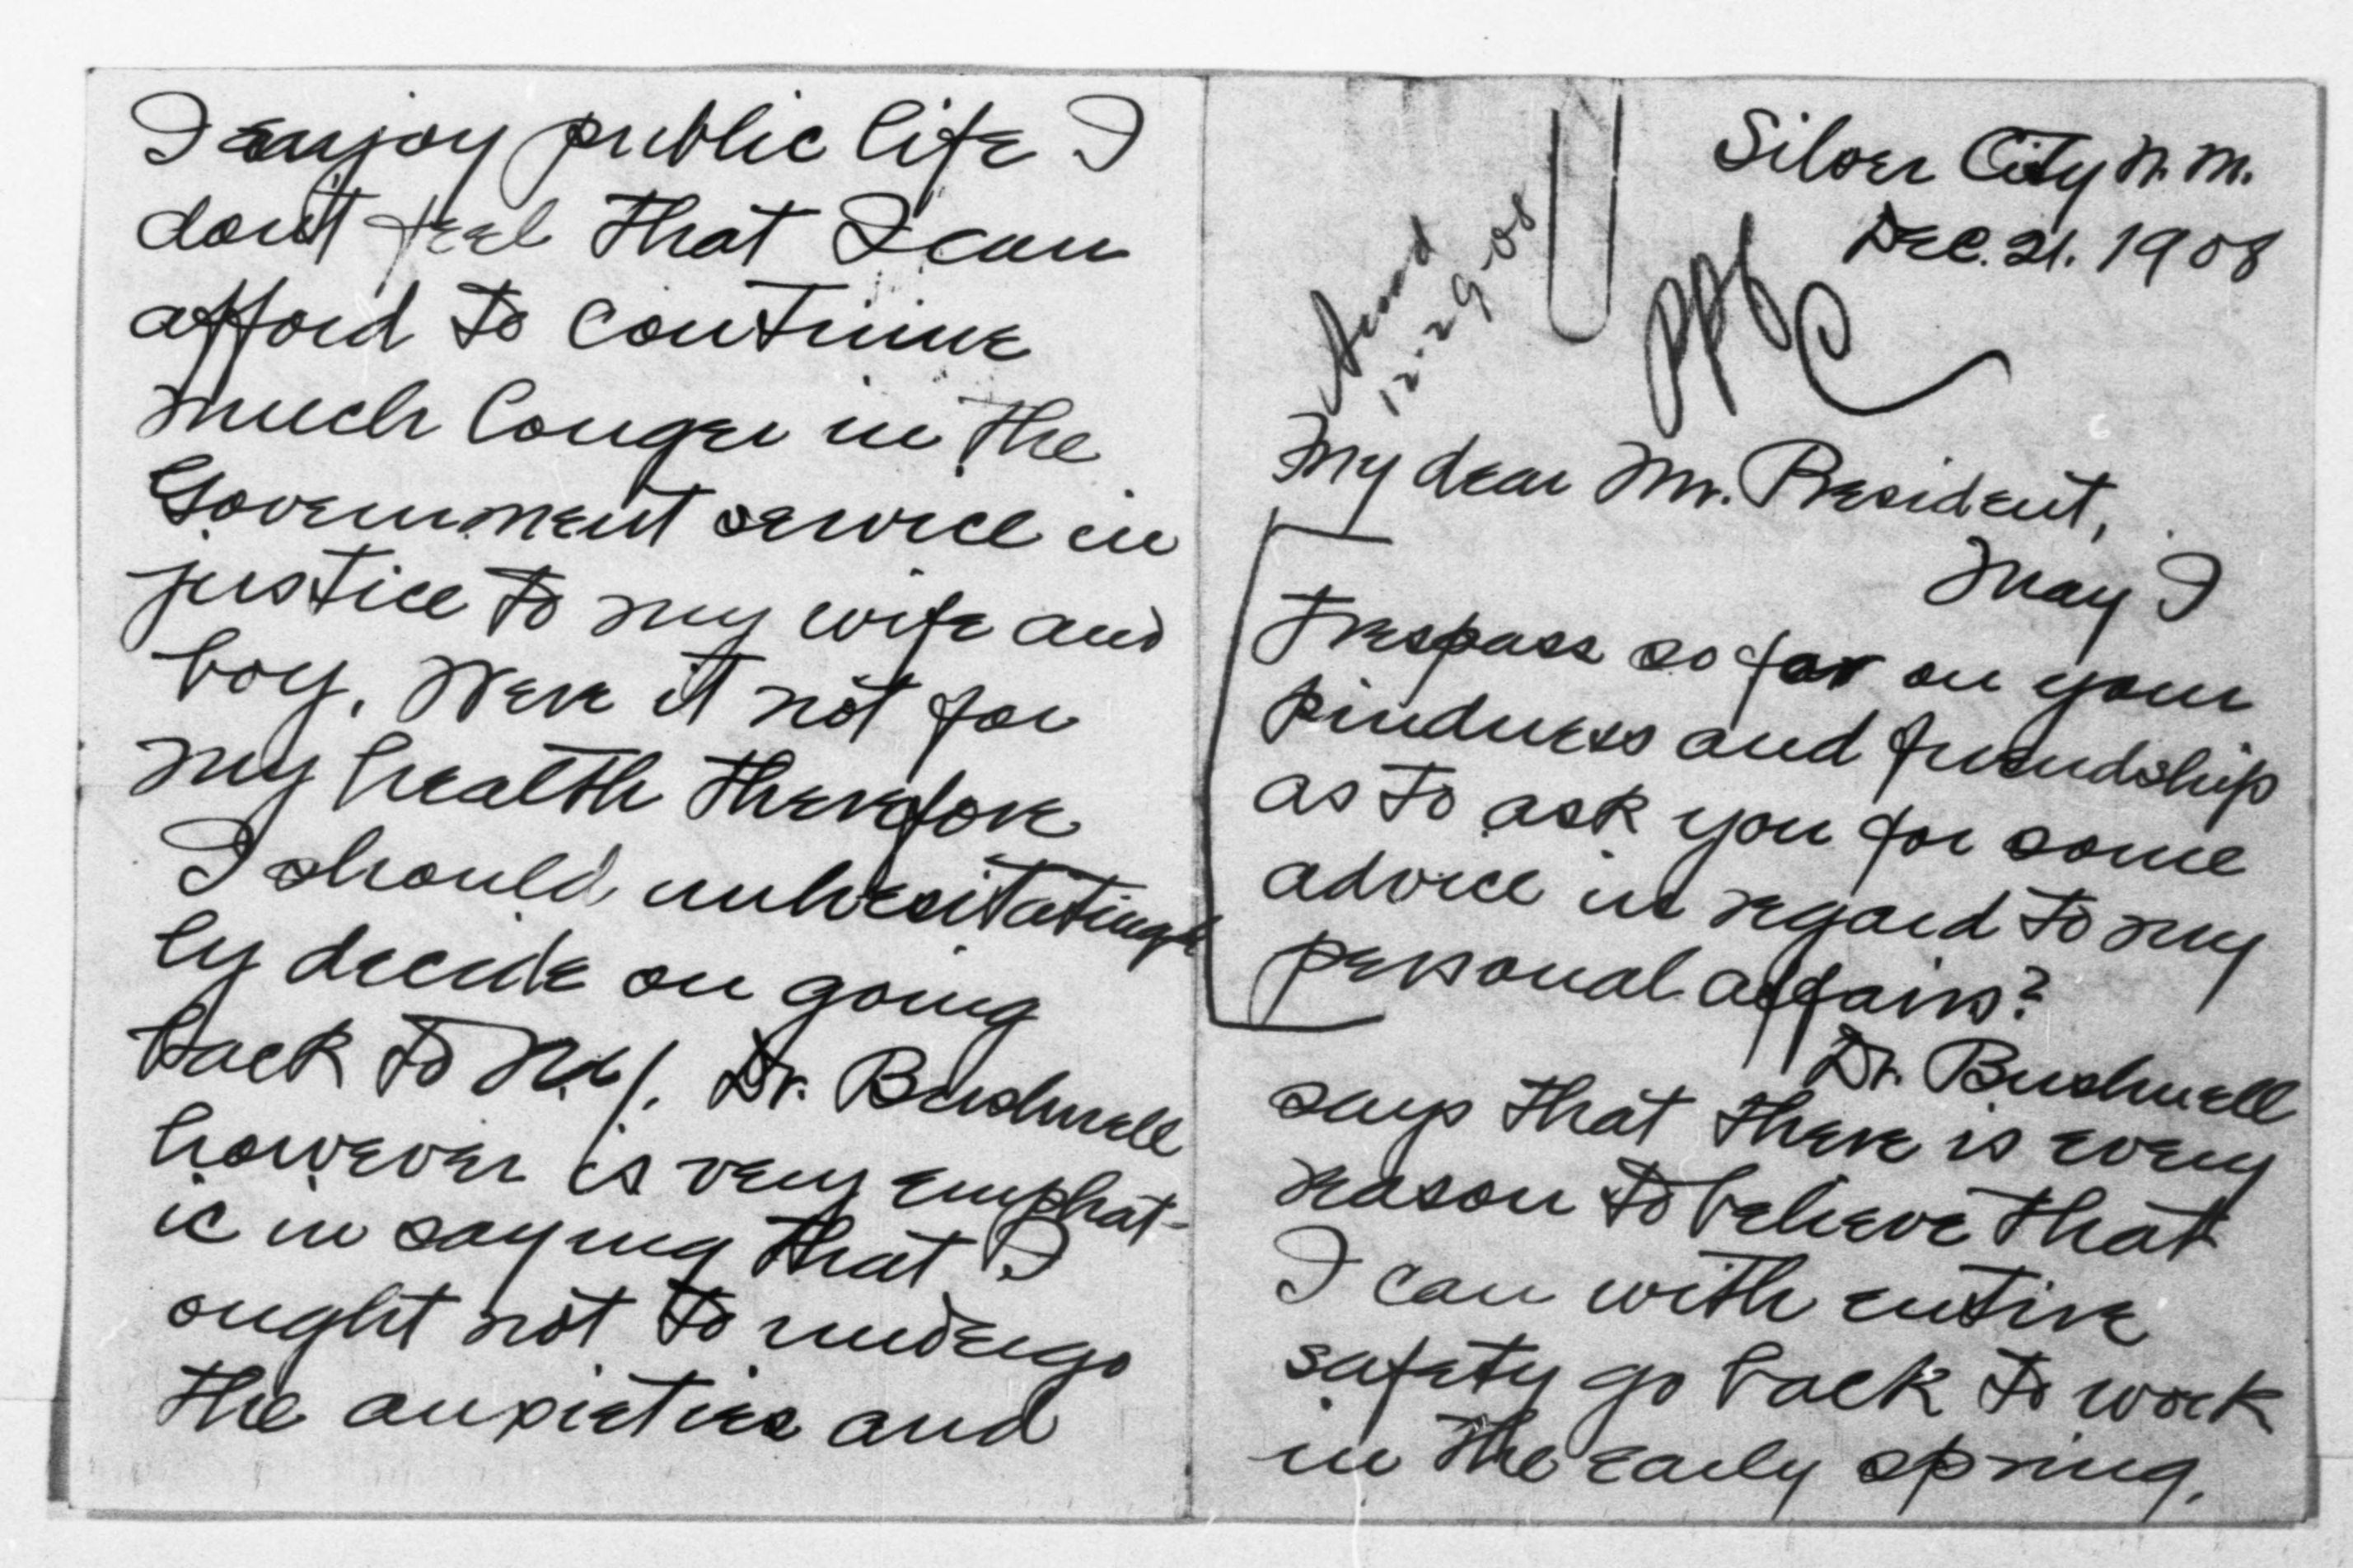 Silver City N. M.
Dec. 21. 1908
12-29-08
PPF
C
My dear Mr. President,
May I
trespass so far on your
kindness and friendship
as to ask you for some
advice in regard to my
personal affairs?
Dr. Bushnell
says that there is every
reason to believe that
I can with entire
safety go back to work
in the early spring.
I enjoy public life I
don't feel that I can
afford to continue
much longer in the
Government service in
justice to my wife and
boy. Were it not for
my health therefore
I should unhesitating
ly decide on going
back to N.Y. Dr. Bushnell
however is very emphat-
ic in saying that I
ought not to undergo
the anxieties and